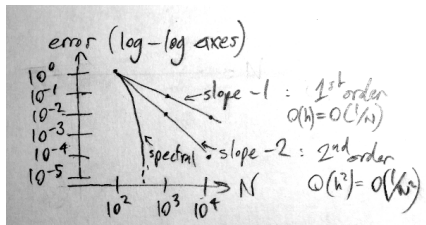 error (log-log axes)
10⁰
10⁻¹
10⁻²
10⁻³
10⁻⁴
10⁻⁵
10² 10³ 10⁴ N
spectral
slope -1 : 1st order
O(h)=O(1/N)
slope -2 : 2nd order
O(h²)=O(1/N²)